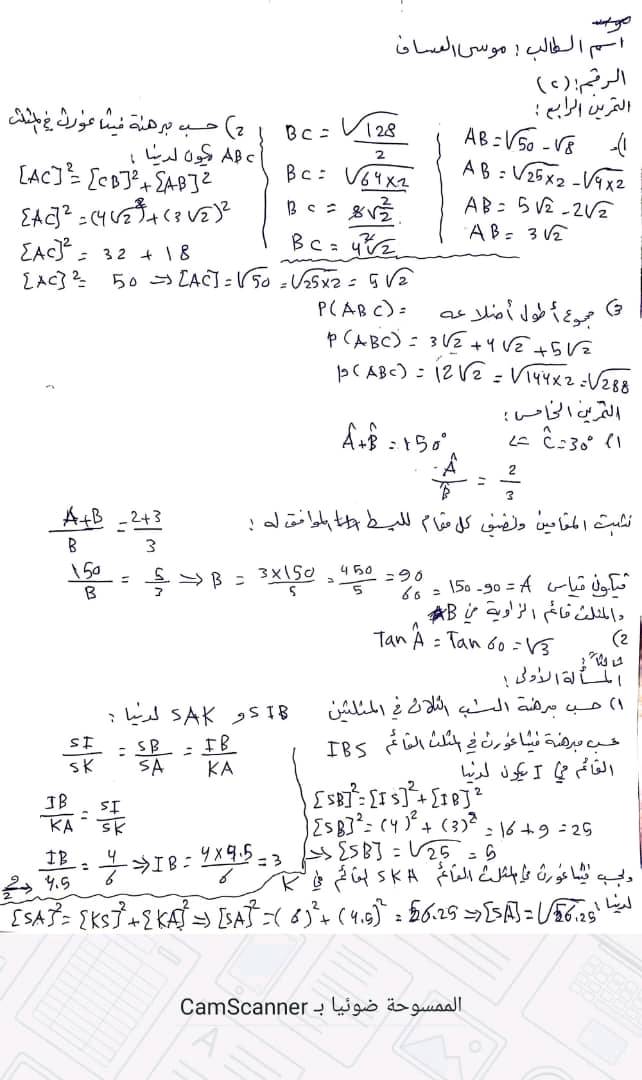 اسم الطالب: موسى العساف
الرقم: (c)
التمرين الرابع:
1) AB = √50 - √8
AB = √25×2 - √4×2
AB = 5√2 - 2√2
AB = 3√2
BC = √128 / 2
BC = √64×2 / 2
BC = 8√2 / 2
BC = 4√2
2) حسب مبرهنة فيثاغورث في المثلث
ABC يكون لدينا:
[AC]² = [CB]² + [AB]²
[AC]² = (4√2)² + (3√2)²
[AC]² = 32 + 18
[AC]² = 50 ⇒ [AC] = √50 = √25×2 = 5√2
3) مجموع أطول أضلاعه P(ABC) =
P(ABC) = 3√2 + 4√2 + 5√2
P(ABC) = 12√2 = √144×2 = √288
التمرين الخامس:
1) Ĉ = 30° ⇒ Â + B̂ = 150°
Â / B̂ = 2 / 3
نثبت المقامين ونضيف كل مقام للبسط الموافق له:
A+B / B = 2+3 / 3
150 / B = 5 / 3 ⇒ B = 3×150 / 5 = 450 / 5 = 90
فيكون قياس A = 150 - 90 = 60
والمثلث قائم الزاوية في B
2) Tan Â = Tan 60 = √3
ثالثاً:
المسألة الأولى:
1) حسب مبرهنة النسب الثلاث في المثلثين SIB و SAK لدينا:
SI / SK = SB / SA = IB / KA
IB / KA = SI / SK
IB / 4.5 = 4 / 6 ⇒ IB = 4×4.5 / 6 = 3
حسب مبرهنة فيثاغورث في المثلث القائم IBS
القائم في I يكون لدينا
[SB]² = [IS]² + [IB]²
[SB]² = (4)² + (3)² = 16 + 9 = 25
⇒ [SB] = √25 = 5
وحسب فيثاغورث في المثلث القائم SKA القائم في K
لدينا [SA]² = [KS]² + [KA]² ⇒ [SA]² = (6)² + (4.5)² = 56.25 ⇒ [SA] = √56.25
الممسوحة ضوئيا بـ CamScanner